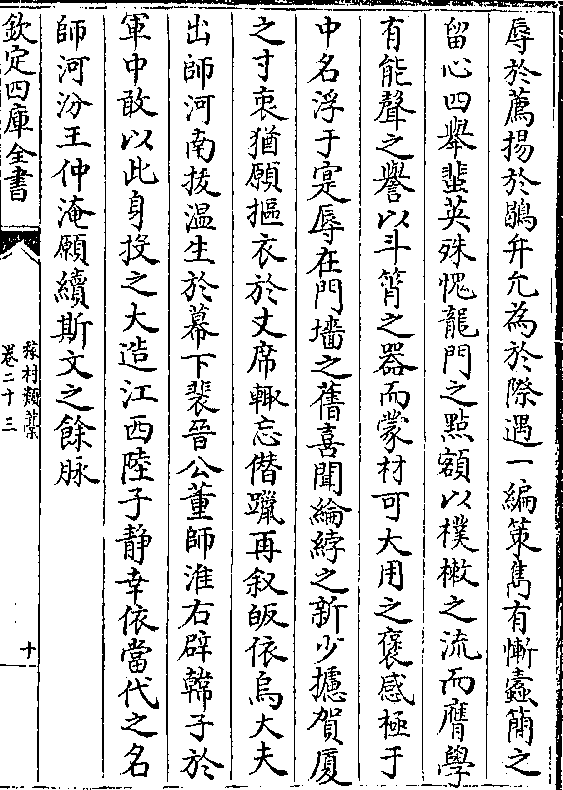 辱於薦揚於鶚弁允為於際遇一編策雋有慚蠹簡之
留心四舉蜚英殊愧龍門之點額以樸樕之流而膺學
有能聲之譽以斗筲之器而蒙材可大用之褒感極于
中名浮于寔辱在門墻之舊喜聞綸綍之新少攄賀厦
之寸衷猶願摳衣於丈席輙忘僭躐再叙皈依烏大夫
出師河南拔温生於幕下裴晉公董師淮右辟韓子於
軍中敢以此身投之大造江西陸子静幸依當代之名
師河汾王仲淹願續斯文之餘脉
欽定四庫全書
秣村類藁
卷二十三
十